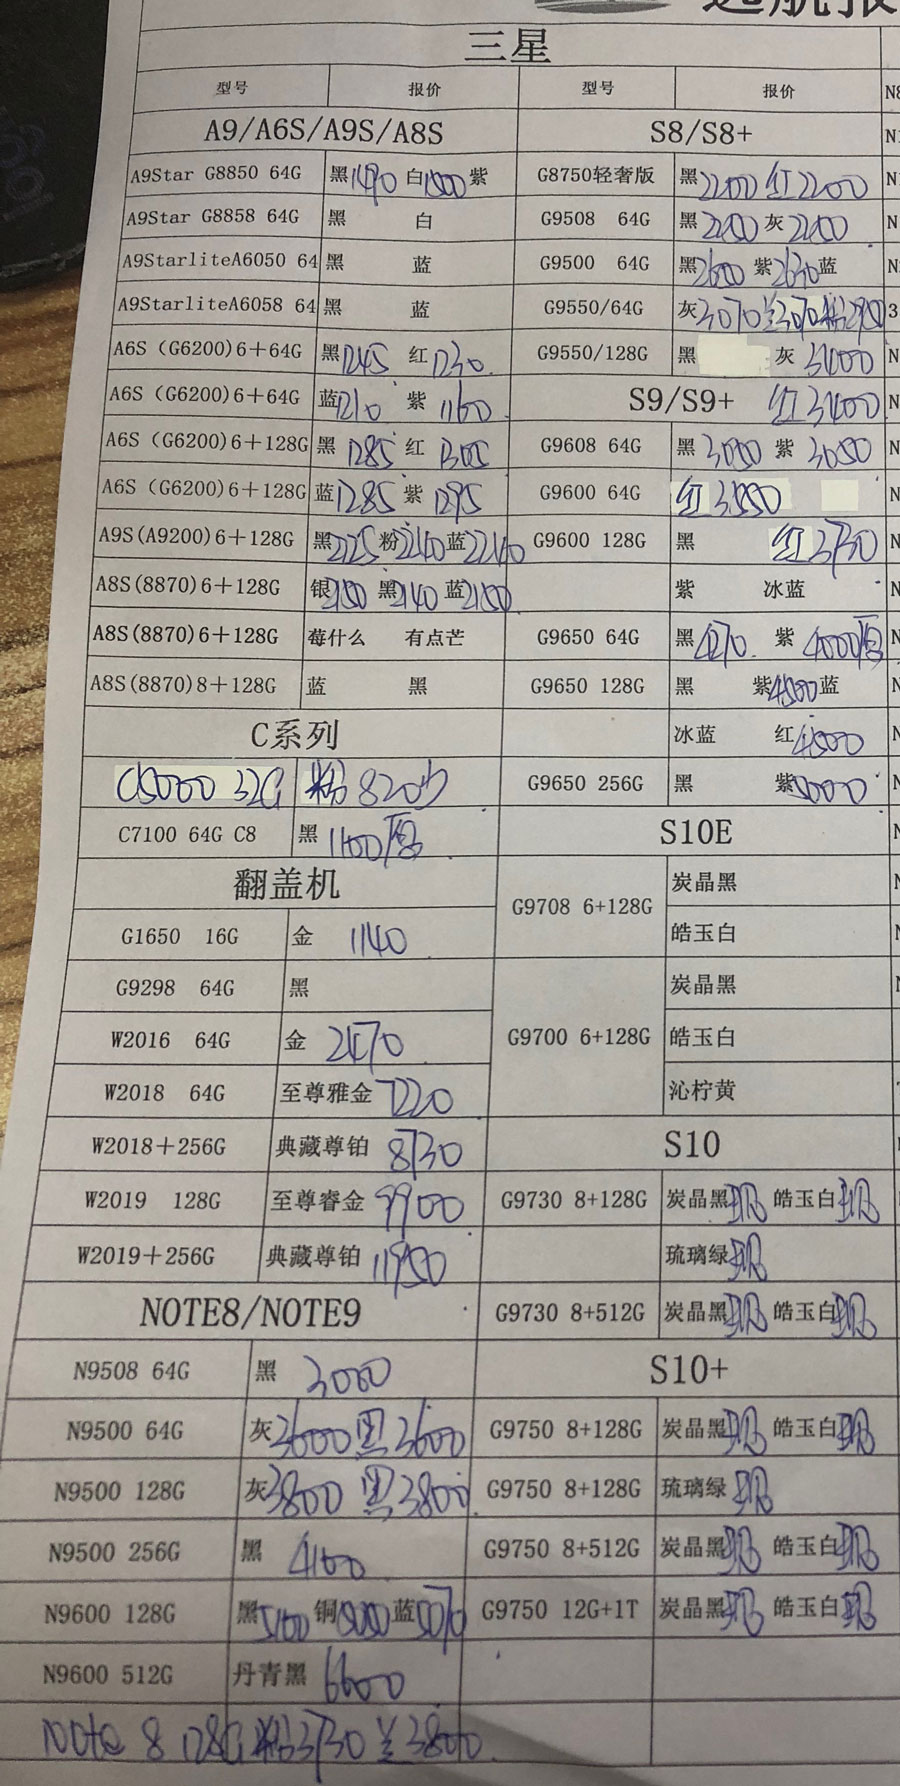 远航报
三星
型号 报价 型号 报价
A9/A6S/A9S/A8S S8/S8+
A9Star G8850 64G 黑1490 白1500 紫 G8750轻奢版 黑2200 红2200
A9Star G8858 64G 黑 白 G9508 64G 黑2200 灰2200
A9StarliteA6050 64 黑 蓝 G9500 64G 黑2600 紫2630 蓝
A9StarliteA6058 64 黑 蓝 G9550/64G 灰3070
A6S (G6200)6+64G 黑1245 红1230 G9550/128G 黑 灰3400
A6S (G6200)6+64G 蓝1210 紫1160 S9/S9+ 红3400
A6S (G6200)6+128G 黑1285 红1305 G9608 64G 黑3050 紫3050
A6S (G6200)6+128G 蓝1285 紫1295 G9600 64G 红3550
A9S(A9200)6+128G 黑2225 粉2240 蓝2240 G9600 128G 黑 红3730
A8S(8870)6+128G 银2150 黑2140 蓝2150 紫 冰蓝
A8S(8870)6+128G 莓什么 有点芒 G9650 64G 黑4270 紫4000
A8S(8870)8+128G 蓝 黑 G9650 128G 黑 紫4500 蓝
C系列 冰蓝 红4500
C5000 32G 粉820 G9650 256G 黑 紫5000
C7100 64G C8 黑1100 S10E
翻盖机 G9708 6+128G 炭晶黑
G1650 16G 金 1140 皓玉白
G9298 64G 黑 炭晶黑
W2016 64G 金 2470 G9700 6+128G 皓玉白
W2018 64G 至尊雅金 7220 沁柠黄
W2018+256G 典藏尊铂 8730 S10
W2019 128G 至尊睿金 9900 G9730 8+128G 炭晶黑现 皓玉白现
W2019+256G 典藏尊铂 11950 琉璃绿现
NOTE8/NOTE9 G9730 8+512G 炭晶黑现 皓玉白现
N9508 64G 黑 3000 S10+
N9500 64G 灰3600 黑3600 G9750 8+128G 炭晶黑现 皓玉白现
N9500 128G 灰3800 黑3800 G9750 8+128G 琉璃绿现
N9500 256G 黑 4100 G9750 8+512G 炭晶黑现 皓玉白现
N9600 128G 黑5100 铜5050 蓝5070 G9750 12G+1T 炭晶黑现 皓玉白现
N9600 512G 丹青黑 6600
note 8 128G 粉3730 兰3800